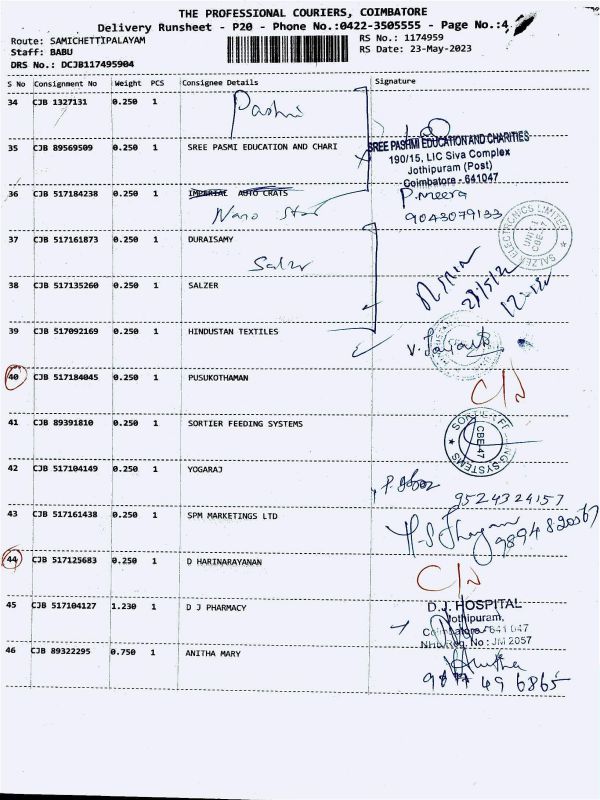 THE PROFESSIONAL COURIERS, COIMBATORE
Delivery Runsheet - P20 - Phone No.:0422-3505555 - Page No.:4
Route: SAMICHETTIPALAYAM
RS No.: 1174959
Staff: BABU
RS Date: 23-May-2023
DRS No.: DCJB117495904
S No Consignment No Weight PCS Consignee Details Signature
34 CJB 1327131 0.250 1 Pashmi
35 CJB 89569509 0.250 1 SREE PASMI EDUCATION AND CHARI
SREE PASHMI EDUCATION AND CHARITIES
190/15, LIC Siva Complex
Jothipuram (Post)
Coimbatore - 641047
36 CJB 517184238 0.250 1 IMPERIAL AUTO CRATS
P. Meera
Nano Star
9043079133
SALZER ELECTRONICS LIMITED
UNIT-1
CBE-47
37 CJB 517161873 0.250 1 DURAISAMY
Salzer
38 CJB 517135260 0.250 1 SALZER
39 CJB 517092169 0.250 1 HINDUSTAN TEXTILES
40 CJB 517184045 0.250 1 PUSUKOTHAMAN
C/N
41 CJB 89391810 0.250 1 SORTIER FEEDING SYSTEMS
CBE-47
42 CJB 517104149 0.250 1 YOGARAJ
9524324157
43 CJB 517161438 0.250 1 SPM MARKETINGS LTD
44 CJB 517125683 0.250 1 D HARINARAYANAN
C/N
45 CJB 517104127 1.230 1 D J PHARMACY
D.J. HOSPITAL
Jothipuram,
Coimbatore-641 047
Reg. No : JM 2057
46 CJB 89322295 0.750 1 ANITHA MARY
Anitha
9877 49 6865